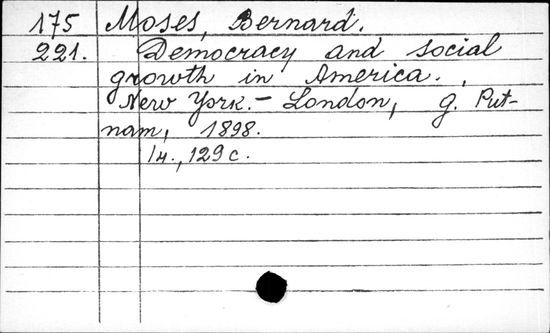 175 Moses, Bernard.
221. Democracy and social
growth in America.,
New York.- London, G. Put-
nam, 1898.
14., 129 c.